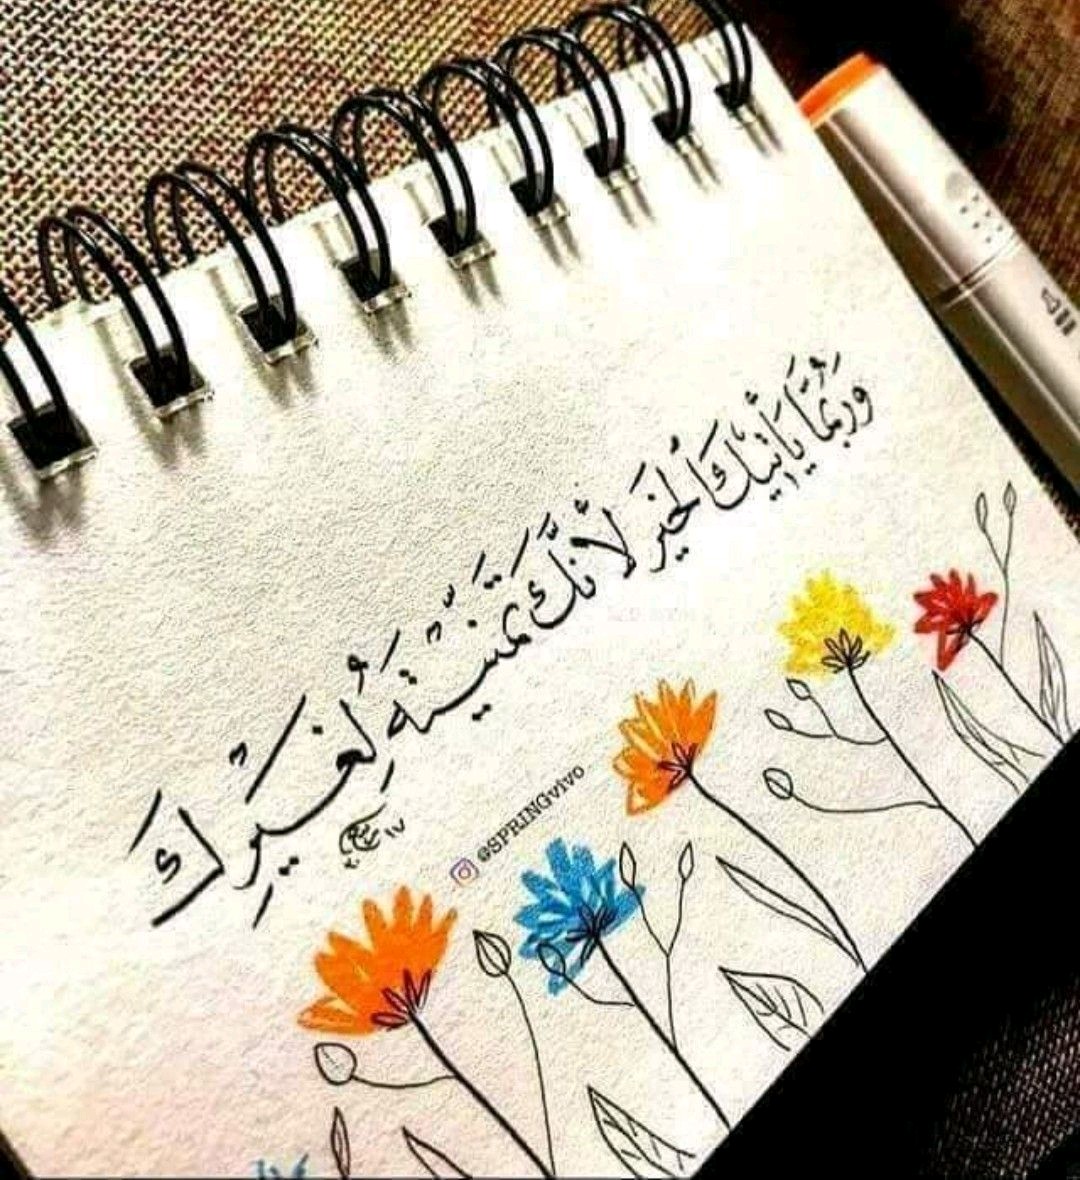 وَرُبَّمَا يَأْتِيْكَ الْخَيْرُ لأَنَّكَ تَمَنَّيْتَهُ لِغَيْرِكَ
@SPRINGvivo